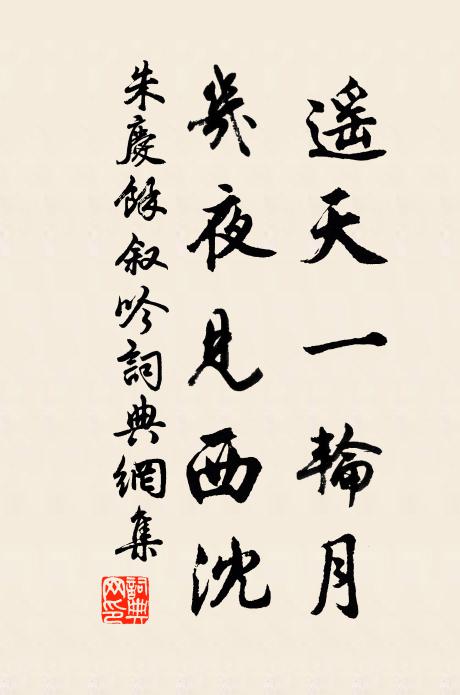 遥天一輪月
幾夜見西沈
朱慶餘叙吟詞典網集
詞典网印